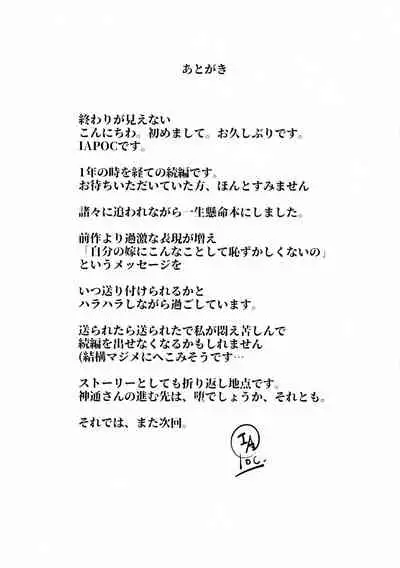 あとがき
終わりが見えない
こんにちわ。初めまして。お久しぶりです。
IAPOCです。
1年の時を経ての続編です。
お待ちいただいていた方、ほんとすみません
諸々に追われながら一生懸命本にしました。
前作より過激な表現が増え
「自分の嫁にこんなことして恥ずかしくないの」
というメッセージを
いつ送り付けられるかと
ハラハラしながら過ごしています。
送られたら送られたで私が悶え苦しんで
続編を出せなくなるかもしれません
(結構マジメにへこみそうです…
ストーリーとしても折り返し地点です。
神通さんの進む先は、堕でしょうか、それとも。
それでは、また次回。
IA
POC.